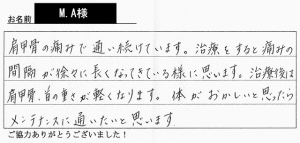 お名前 M.A様
肩甲骨の痛みで通い続けています。治療をすると痛みの
間隔が徐々に長くなってきている様に思います。治療後は
肩甲骨、首の重さが軽くなります。体がおかしいと思ったら
メンテナンスに通いたいと思います
ご協力ありがとうございました!